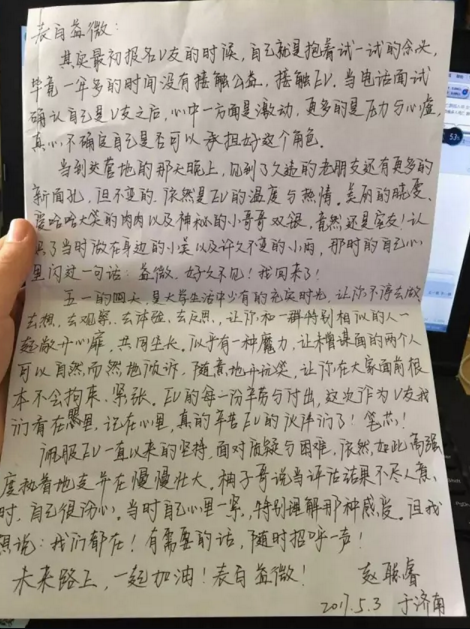 表白益微：
其实最初报名V友的时候，自己就是抱着试一试的念头，
毕竟一年多的时间没有接触公益，接触EV。当电话面试
确认自己是V友之后，心中一方面是激动，更多的是压力与心虚，
真心不确定自己是否可以承担好这个角色。
当到达营地的那天晚上，见到了久违的老朋友还有更多的
新面孔，但不变的依然是EV的温度与热情。美丽的晓雯、
爱哈哈大笑的肉肉以及神秘的小哥哥双银，竟然还是室友！认
识了当时做在身边的小吴以及许久不见的小雨，那时的自己心
里闪过一句话：益微，好久不见！我回来了！
五一的四天，是大学生活中少有的充实时光，让你不停去做
去想、去观察、去体验、去反思，让你和一群特别相似的人一
起敞开心扉，共同生长。似乎有一种魔力，让未曾谋面的两个人
可以自然而然地倾诉，随意地开玩笑，让你在大家面前根
本不会拘束、紧张。EV的每一份辛苦与付出，这次作为V友我
们看在眼里，记在心里，真的辛苦EV的伙伴们了！笔芯！
佩服EV一直以来的坚持，面对质疑与困难，依然如此高强
度执着地支半在慢慢壮大。柚子哥说当评估结果不尽人意
时，自己很伤心。当时自己心里一紧，特别理解那种感受。但我
想说：我们都在！有需要的话，随时招呼一声！
未来路上，一起加油！表白益微！ 赵聪睿
2017.5.3 于济南